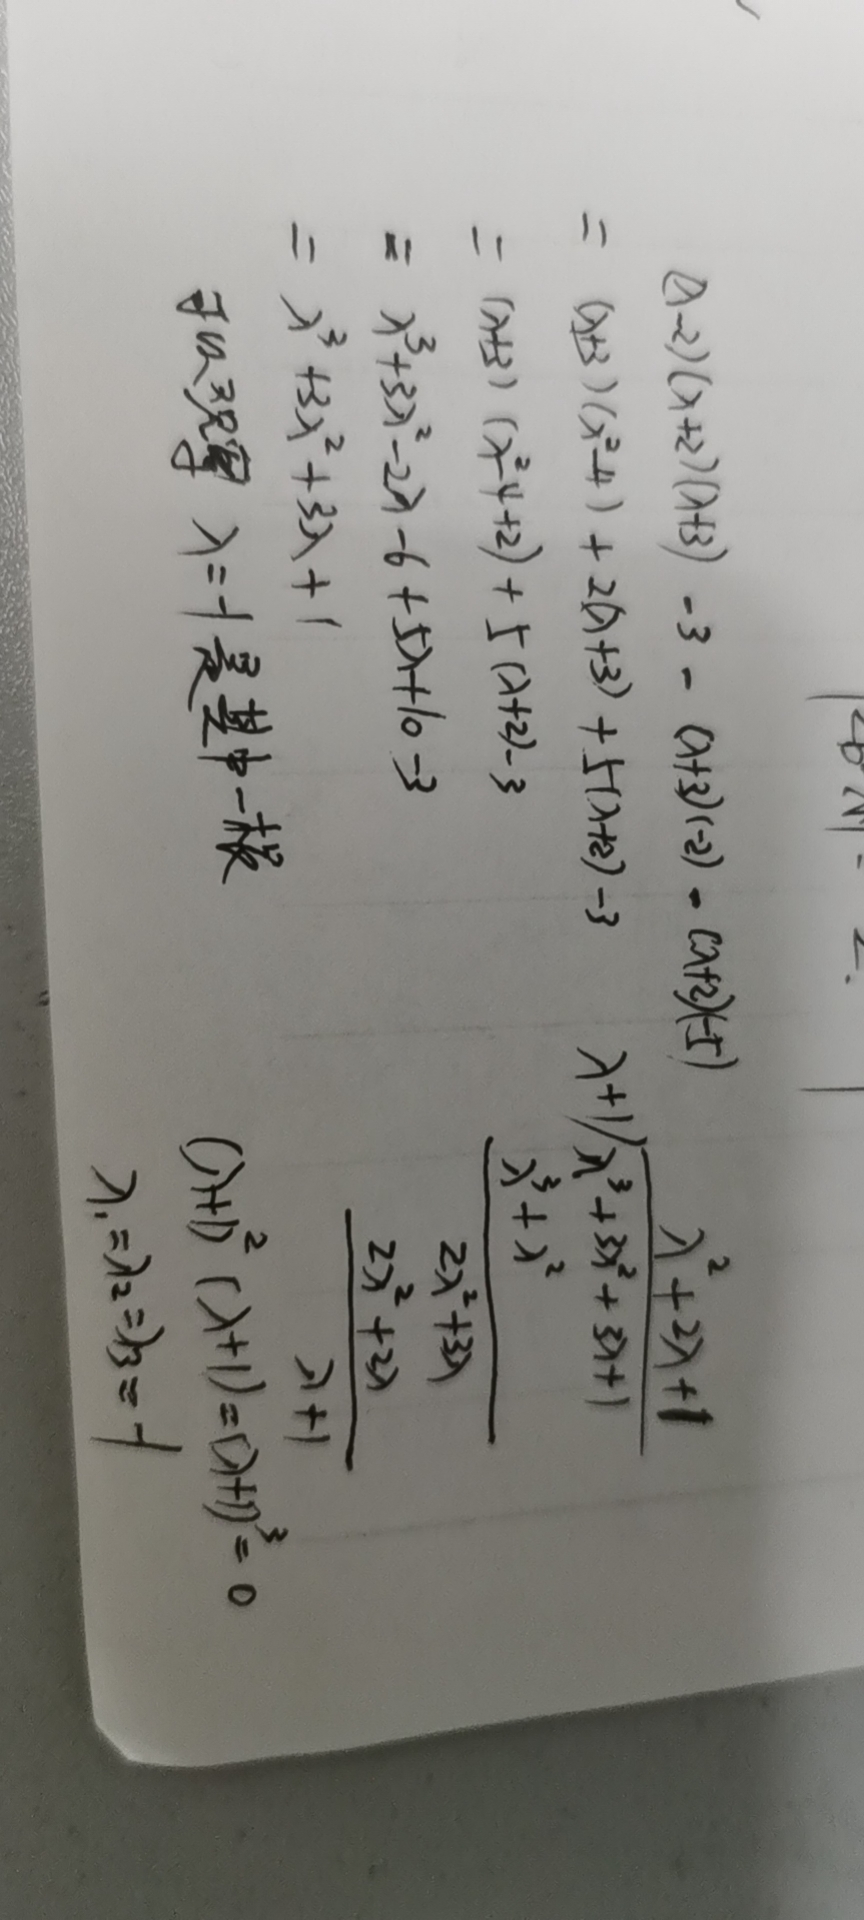 (λ-2)(λ+2)(λ+3) -3 - (λ+3)(-2) - (λ+2)(-5)
= (λ+3)(λ²-4) + 2(λ+3) + 5(λ+2) -3
= (λ+3)(λ²-4+2) + 5(λ+2)-3
= λ³+3λ²-2λ-6+5λ+10-3
= λ³+3λ²+3λ+1
可以观察 λ=-1 是其中一根
λ²+2λ+1
λ+1)λ³+3λ²+3λ+1
λ³+λ²
2λ²+3λ
2λ²+2λ
λ+1
(λ+1)²(λ+1)=(λ+1)³=0
λ₁=λ₂=λ₃=-1